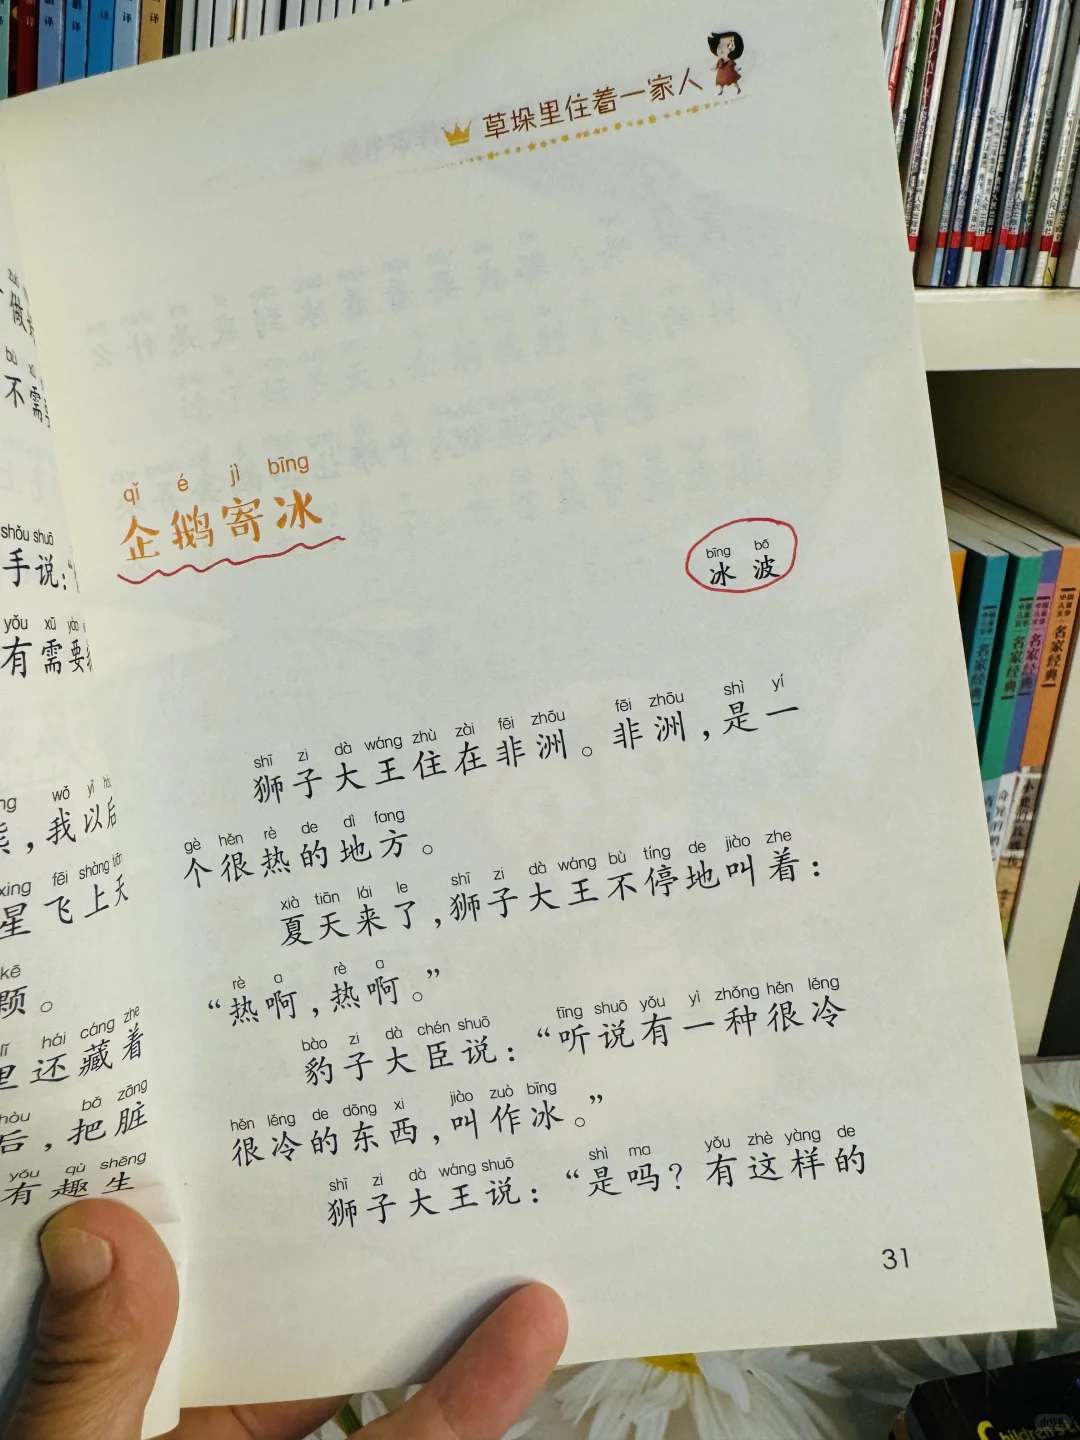 草垛里住着一家人
qǐ é jì bīng
企鹅寄冰
bīng bō
冰波
shī zi dà wáng zhù zài fēi zhōu fēi zhōu shì yí
狮子大王住在非洲。非洲，是一
gè hěn rè de dì fang
个很热的地方。
xià tiān lái le shī zi dà wáng bù tíng de jiào zhe
夏天来了，狮子大王不停地叫着：
rè a rè a
“热啊，热啊。”
bào zi dà chén shuō tīng shuō yǒu yì zhǒng hěn lěng
豹子大臣说：“听说有一种很冷
hěn lěng de dōng xi jiào zuò bīng
很冷的东西，叫作冰。”
shī zi dà wáng shuō shì ma yǒu zhè yàng de
狮子大王说：“是吗？有这样的
31
bù
不需
shǒu shuō
手说：“
yǒu xū yào
有需要
wǒ yǐ
，我以后
xīng fēi shàng tiān
星飞上天
kē
颗。
hái cáng zhe
里还藏着
hòu bǎ zāng
后，把脏
yǒu qù shēng
有趣生
名家经典
名家经典
名家经典